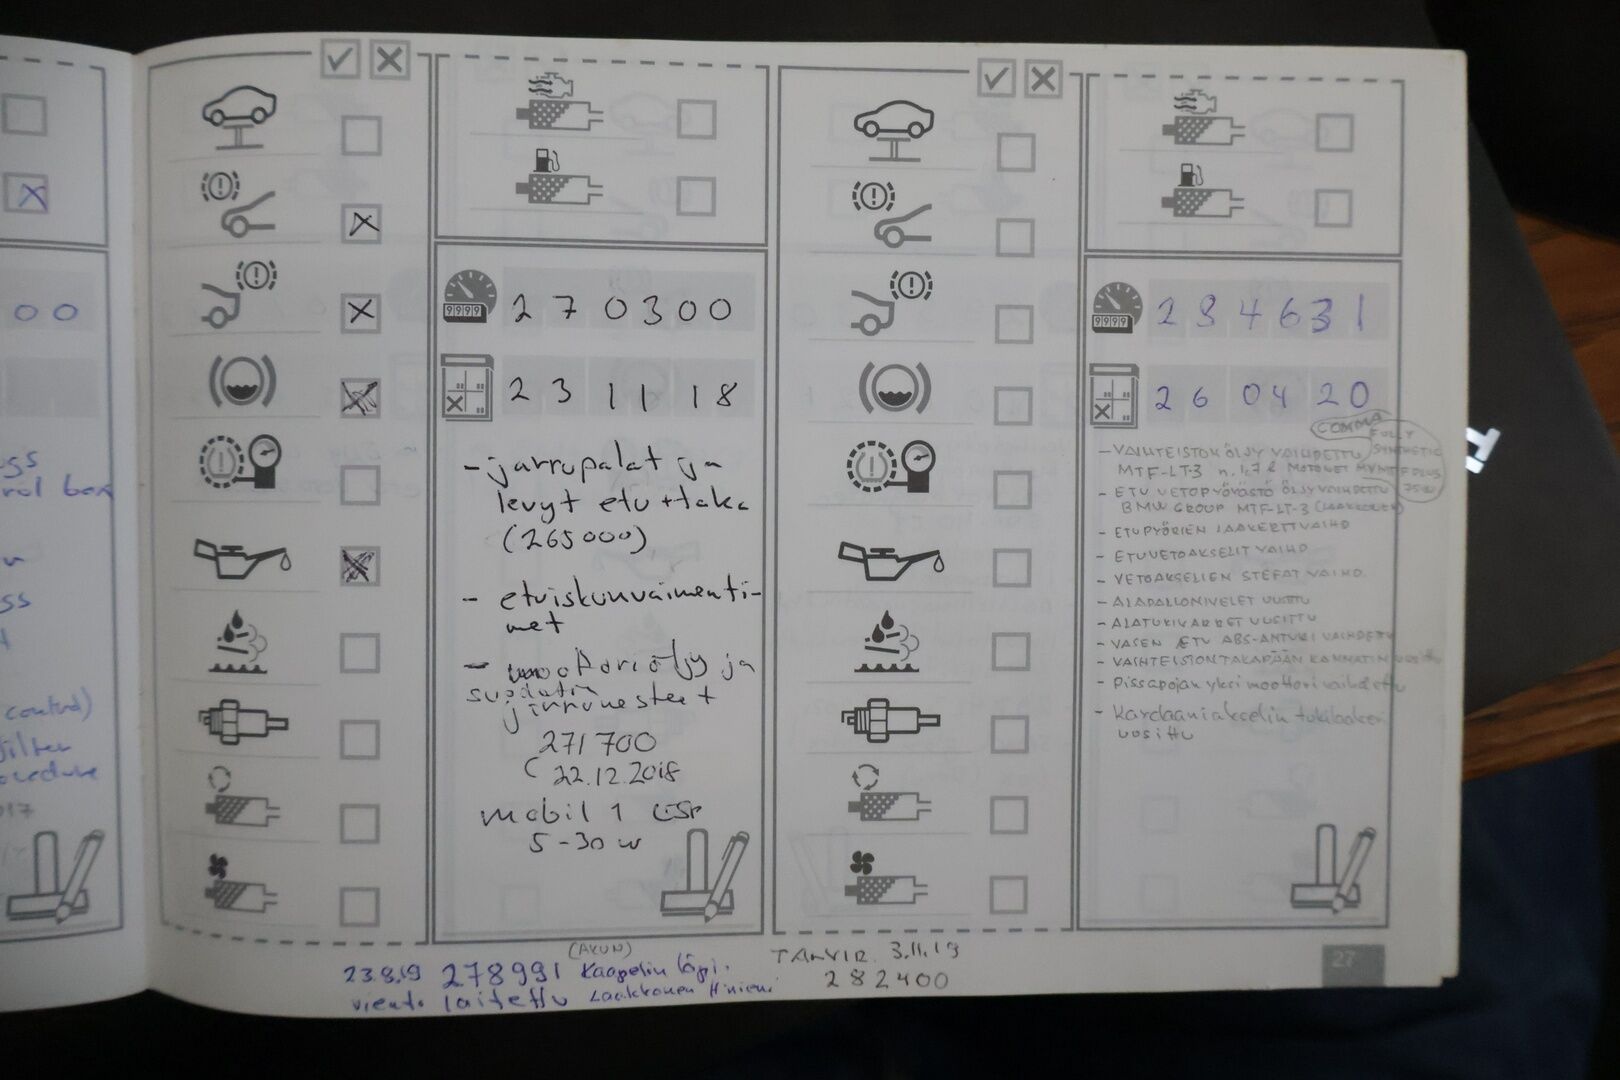 00
rol box
ss
control)
filter
procedure
017
9999
2 7 0 3 0 0
2 3 11 18
- jarrupalat ja
levyt etu + taka
(265000)
- etuiskunvaimenti-
met
- moottoriöljy ja
suodatin
jarrunesteet
271 700
( 22.12.2018
mobil 1 ESP
5-30 w
9999
2 8 4 6 3 1
2 6 04 20
COMMA
FULLY
SYNTHETIC
MVMTF PLUS
75W
- VAIHTEISTON ÖLJY VAIHDETTU
MTF-LT-3 n. 1,7 l MOTONET
- ETU VETOPYÖRÄSTÖ ÖLJY VAIHDETTU
BMW GROUP MTF-LT-3 (LAAKKONEN)
- ETUPYÖRIEN LAAKERIT VAIHD
- ETUVETOAKSELIT VAIHD
- VETOAKSELIEN STEFAT VAIHD.
- ALAPALLONIVELET UUSITTU
- ALATUKIVARRET UUSITTU
- VASEN ETU ABS-ANTURI VAIHDETTU
- VAIHTEISTON TAKAPÄÄN KANNATIN uusittu
- Pissapojan yksi moottori vaihdettu
- Kardaaniakselin tukilaakeri
uusittu
(AKUN)
23.8.19 278991 Kaapelin läpi.
vienti laitettu Laakkonen
3.11.19
282400
27